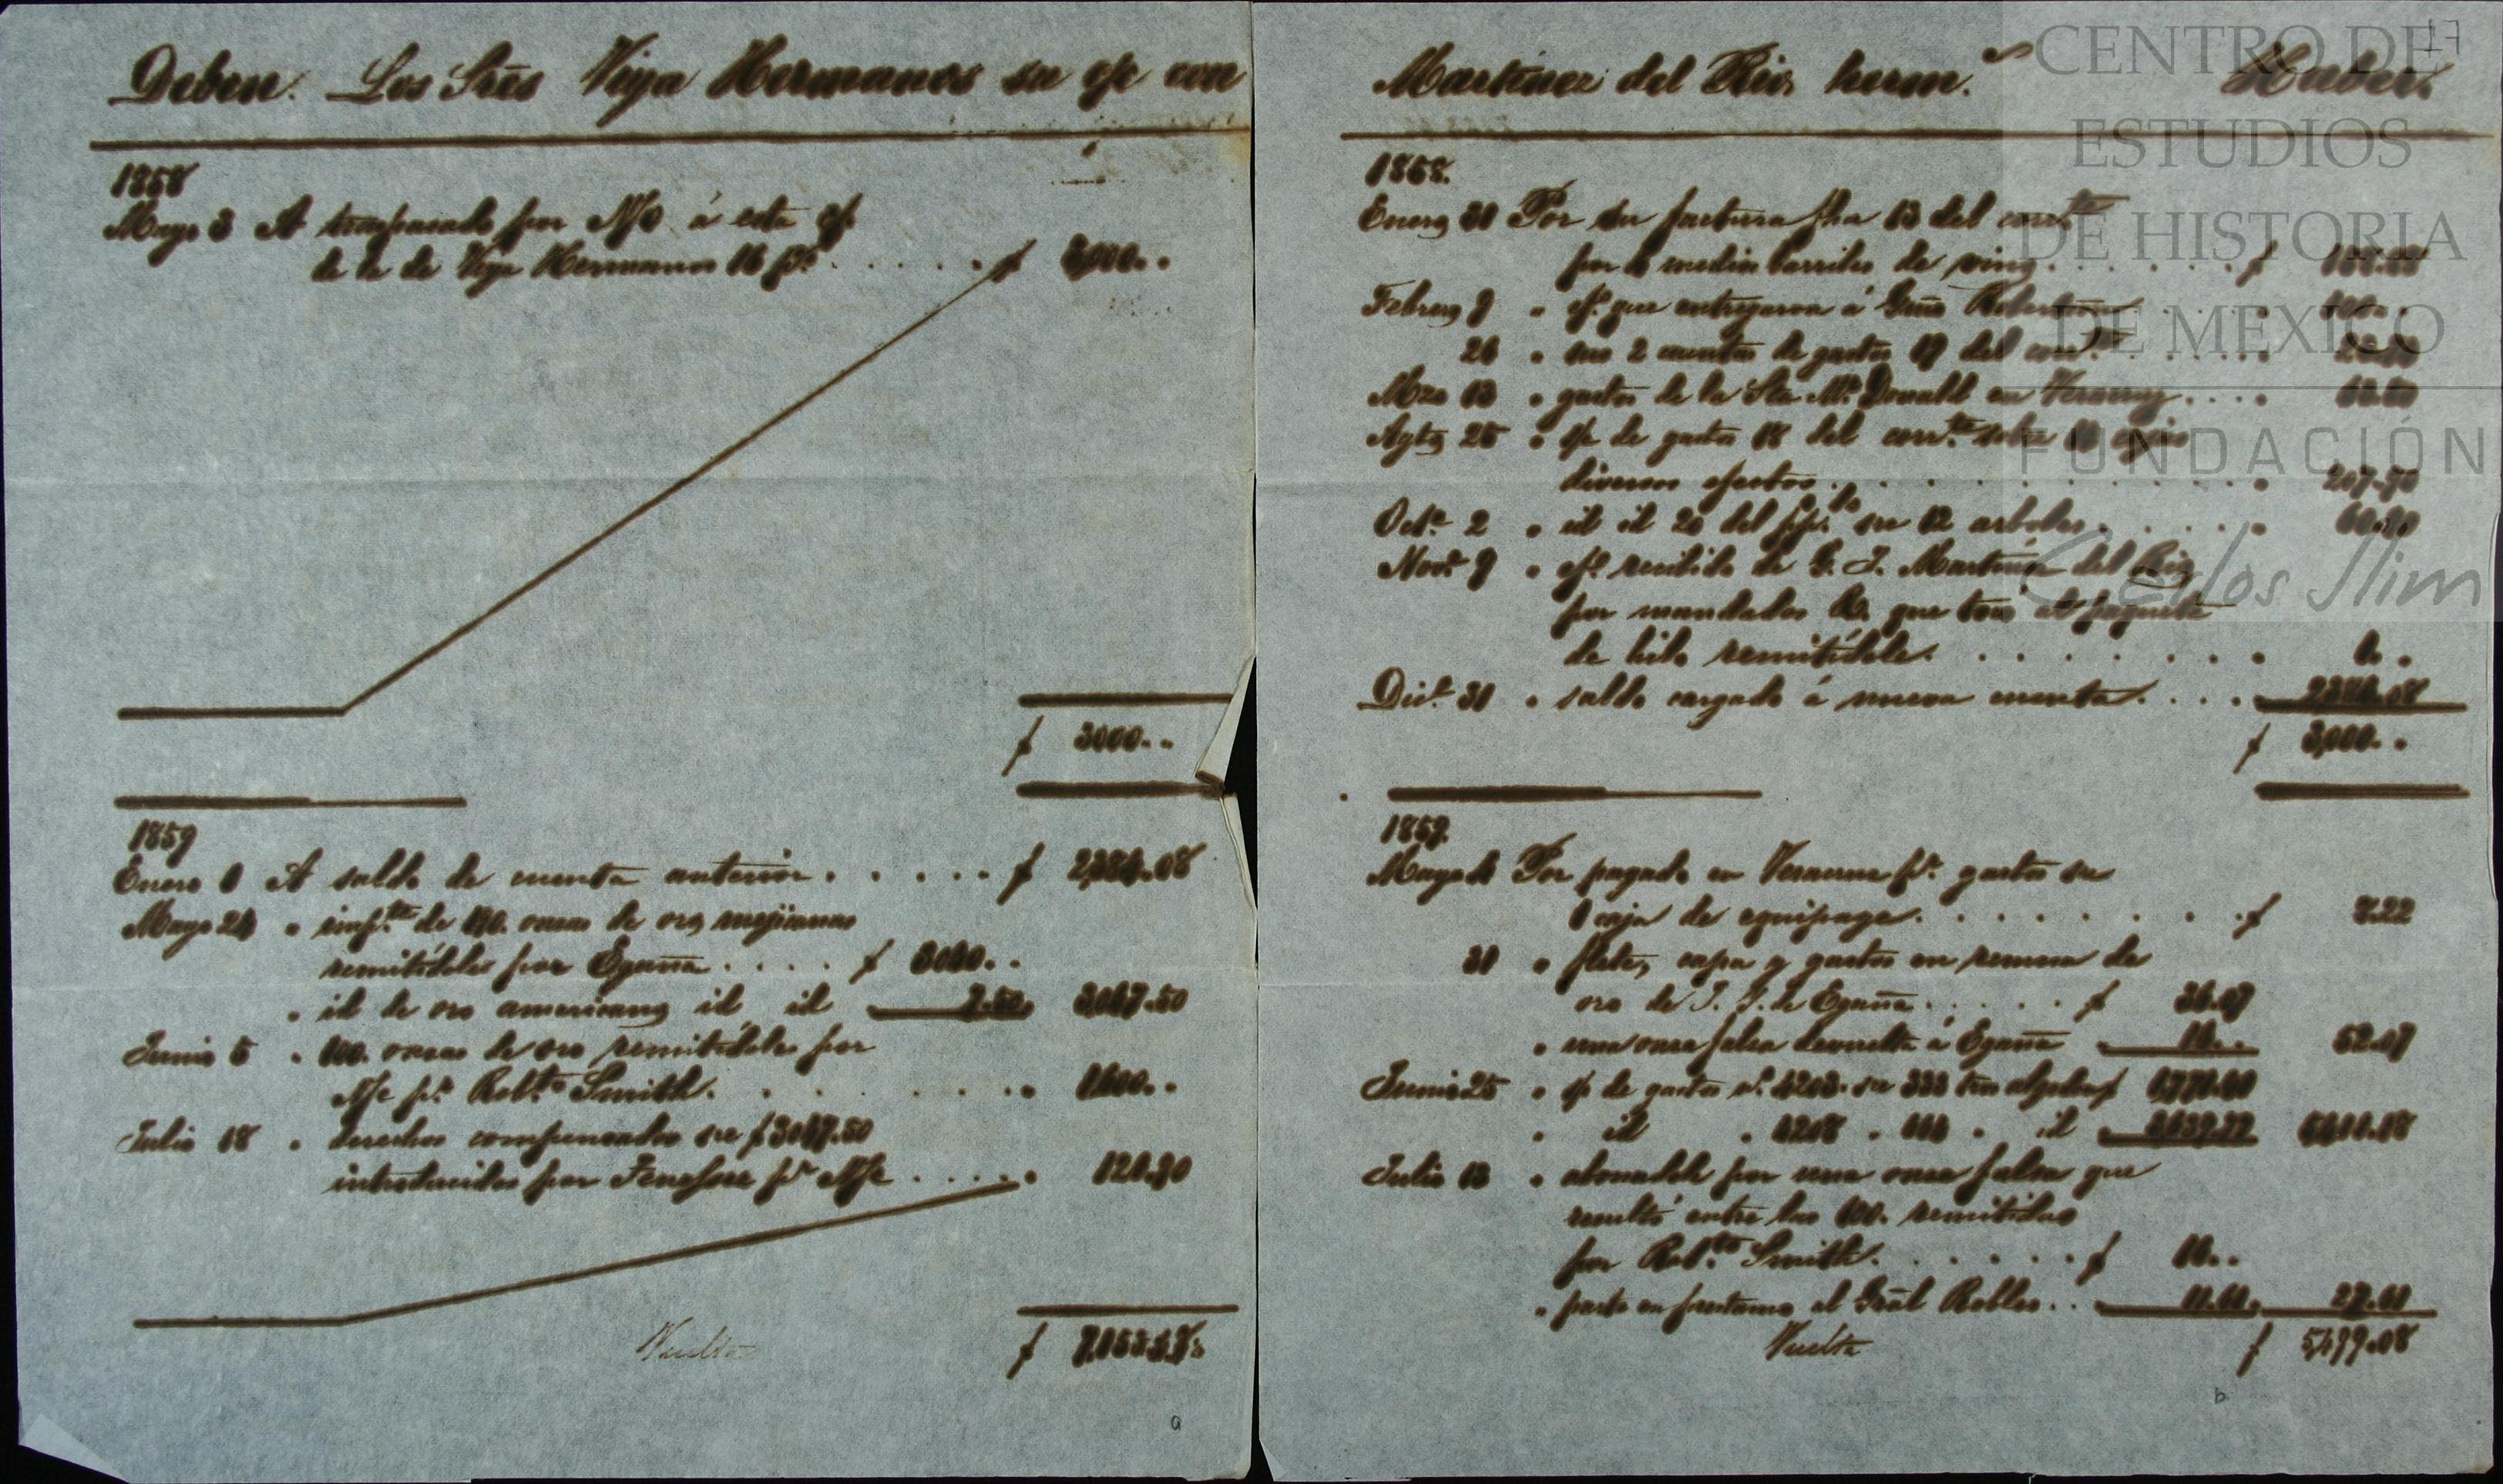 Deben. Los Sres Vega Hermanos su c/c con
1858
Mayo 3 A traspasado por N/O á esta c/
de la de Vega Hermanos 16 pr. $ 3,000..
$ 3000..
1859
Enero 1 A saldo de cuenta anterior $ 2,384.08
Mayo 24 " imp.te de 190. onzas de oro mejicanas
remitídoles por Eguña $ 3040..
" id de oro americano id id 7.50 3047.50
Junio 5 " 100. onzas de oro remitídoles por
N/c pr. Rob.to Smith. 1600..
Julio 18 " derechos compensados sre $ 3047.50
introducidos por pr N/c 121.90
Vuelta
$
a
Martinez del Rio herm.s Haber.
1858.
Enero 31 Por su factura fha 13 del corr.te
por medios barriles de vino $
Febrero 9 " ef.o que entregaron á 
26 " sus 2 cuentas de gastos 17 del corr.te
Mzo 13 " gastos de la Sta Mc. Donall en Veracruz
Agto 25 " c/ de gastos 18 del corr.te sobre cajas
diversos efectos 207.70
Oct.e 2 " id id 20 del pp.do sre 12 arboles
Nov.e 9 " ef.o recibido de G. J. Martinez del Rio
por mandados &. que tomó el paquete
de hilo remitídole.
Dic.e 31 " saldo cargado á nueva cuenta 2384.08
$ 3,000..
1859.
Mayo Por pagado en Veracruz pr. gastos sre
1 caja de equipage. $ 8.22
31 " flete, capa y gastos en remesa de
oro de J. J. de Eguña $ 36.07
" una onza falsa devuelta á Eguña 16.. 52.07
Junio 25 " c/ de gastos n.o 4203. sre 333 
" id " 4218 " " id
Julio 13 " abonable por una onza falsa que
resultó entre las 100. remitidas
por Rob.to Smith. $ 16..
" parte en prestamo al Gral Robles
Vuelta
$ 5,499.08
b
17
CENTRO DE
ESTUDIOS
DE HISTORIA
DE MEXICO
FUNDACIÓN
Carlos Slim